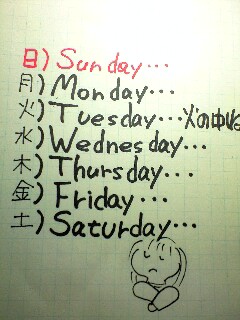 日) Sunday...
月) Monday...
火) Tuesday...火の中
水) Wednesday...
木) Thursday...
金) Friday...
土) Saturday...